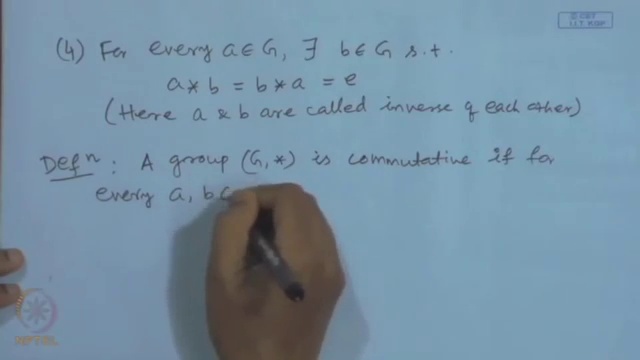 © CET
I.I.T. KGP
(4) For every a ∈ G, ∃ b ∈ G s.t.
a * b = b * a = e
(Here a & b are called inverse of each other)
Defⁿ : A group (G, *) is commutative if for
every a, b ∈
NPTEL